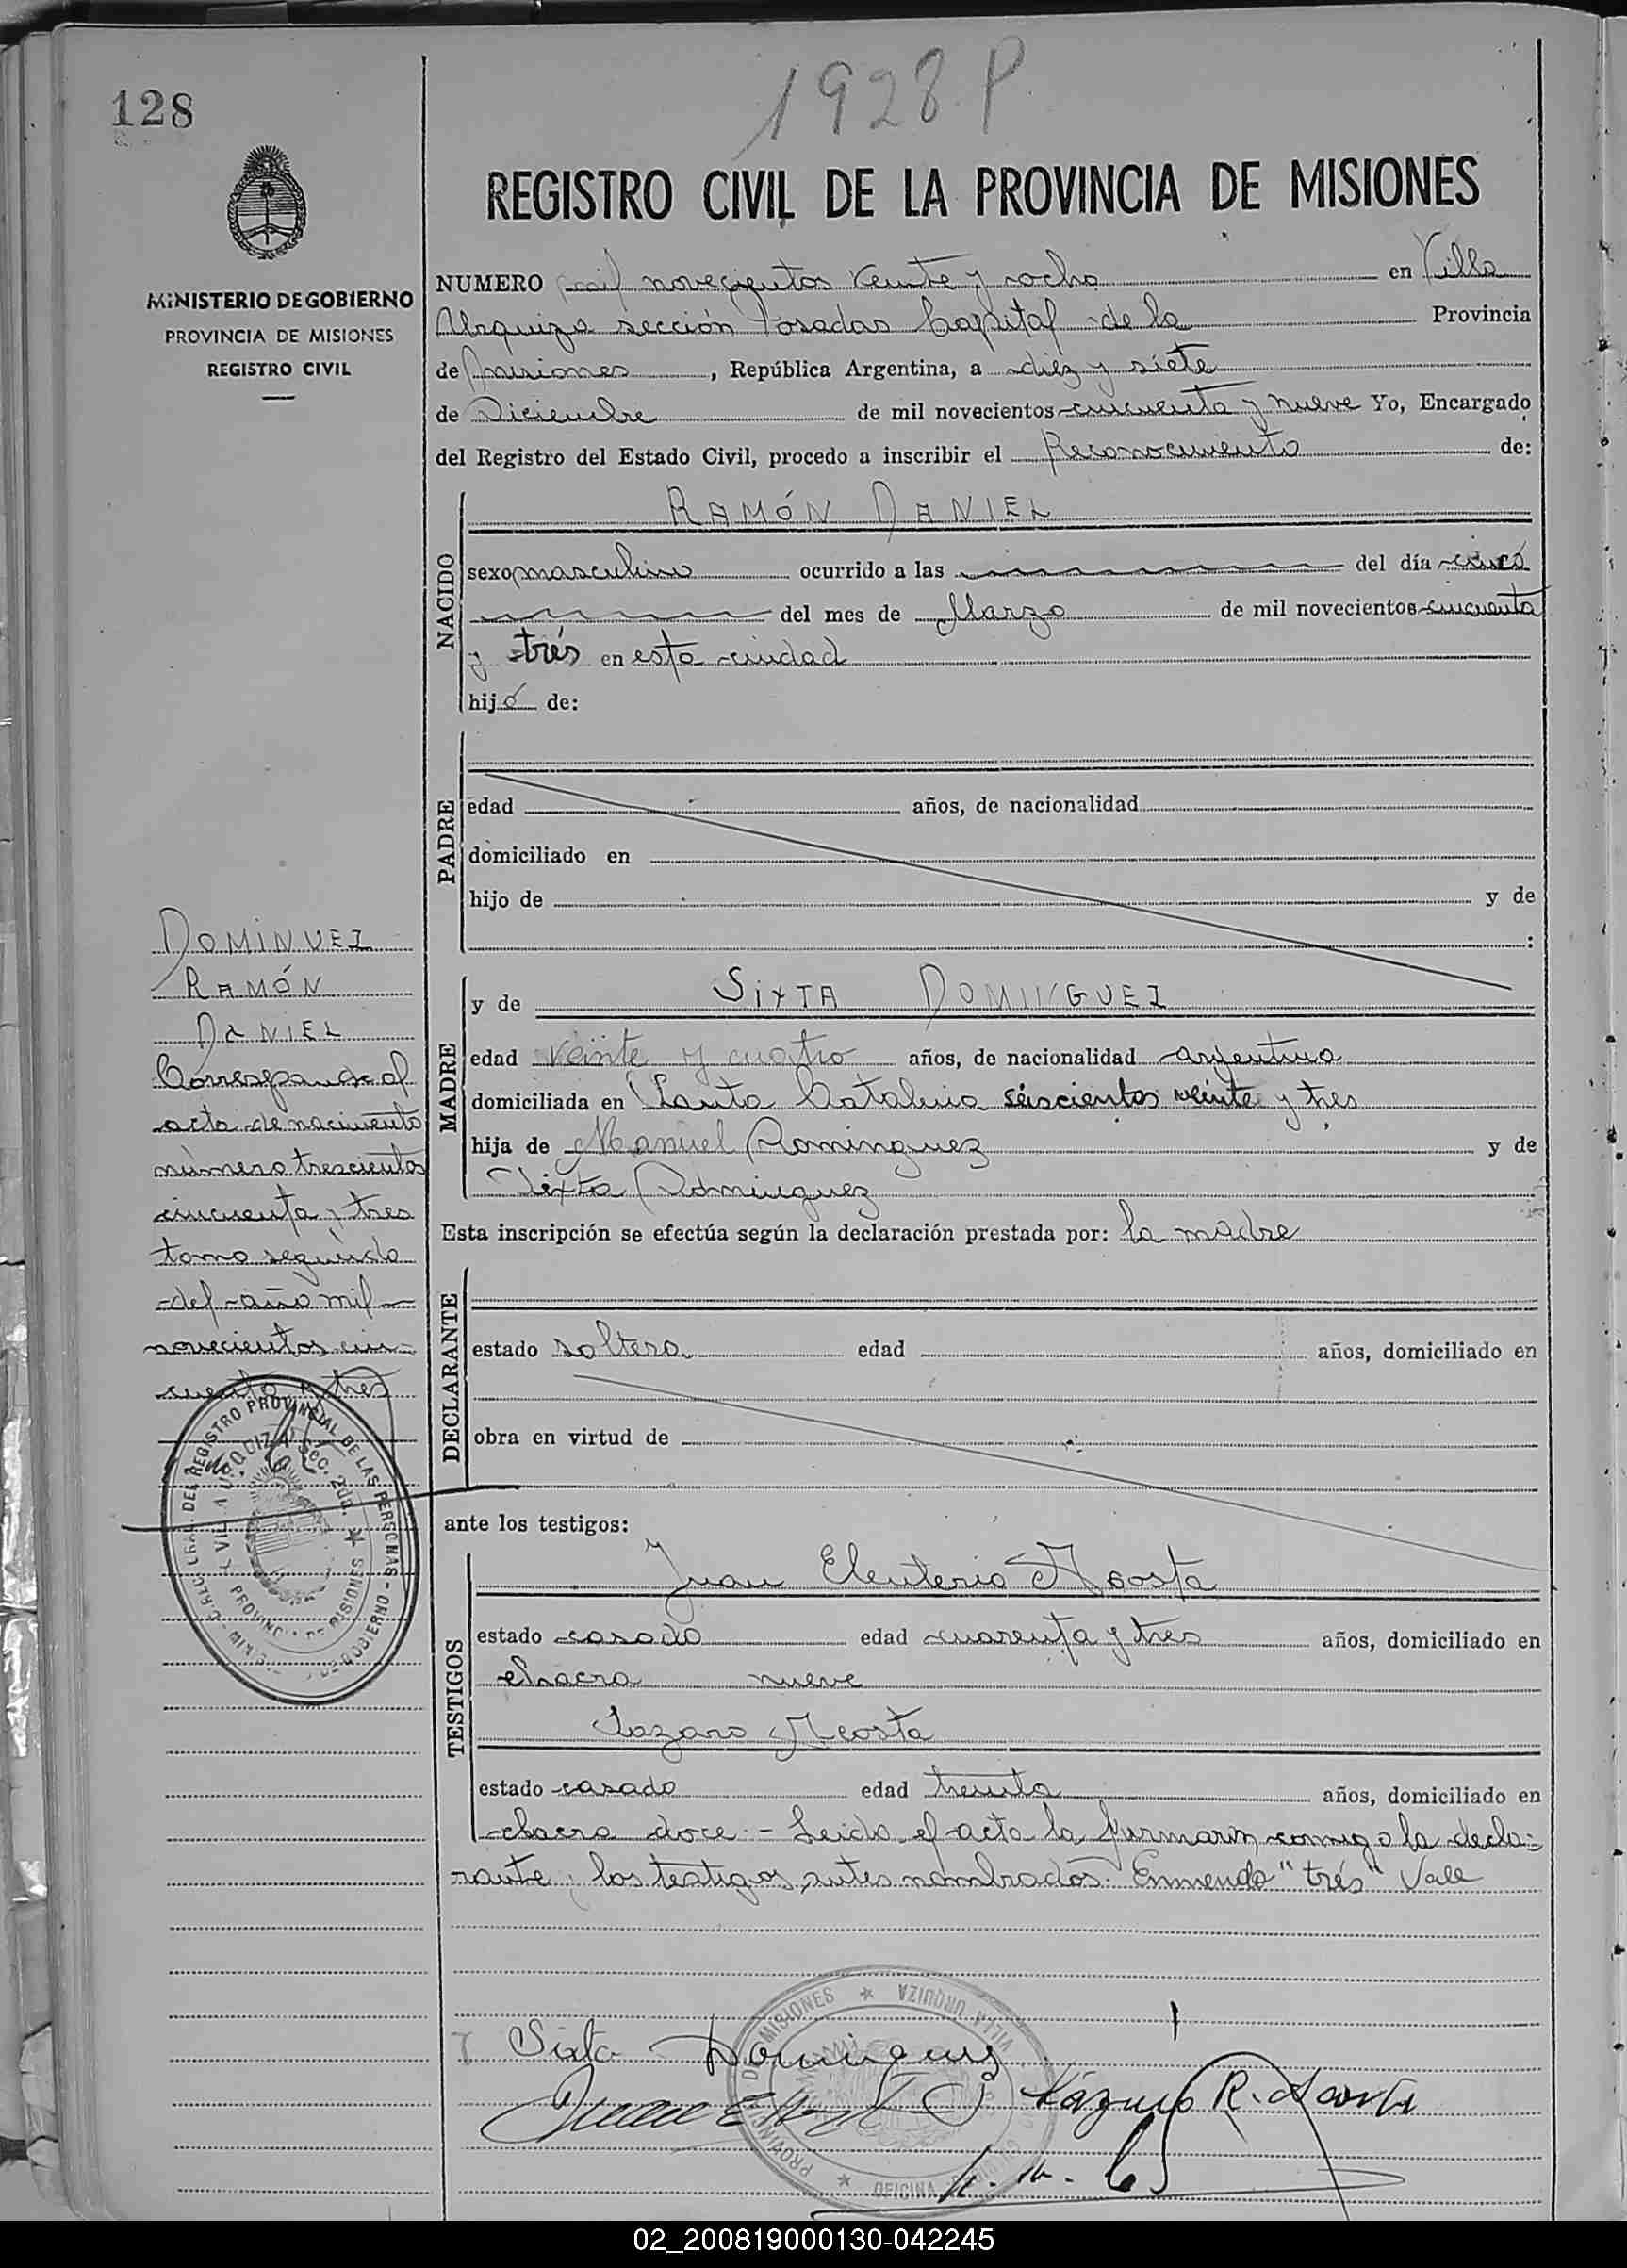 1928 P
128
REGISTRO CIVIL DE LA PROVINCIA DE MISIONES
MINISTERIO DE GOBIERNO
PROVINCIA DE MISIONES
REGISTRO CIVIL
NUMERO mil novecientos veinte y ocho en Villa
Urquiza sección Posadas Capital de la Provincia
de Misiones, República Argentina, a diez y siete
de Diciembre de mil novecientos cincuenta y nueve Yo, Encargado
del Registro del Estado Civil, procedo a inscribir el Reconocimiento de:
NACIDO
RAMÓN DANIEL
sexo masculino ocurrido a las del día cinco
del mes de Marzo de mil novecientos cincuenta
y trés en esta ciudad
hijo de:
PADRE
edad años, de nacionalidad
domiciliado en
hijo de y de
:
MADRE
y de SIXTA DOMINGUEZ
edad veinte y cuatro años, de nacionalidad argentina
domiciliada en Santa Catalina seiscientos veinte y tres
hija de Manuel Dominguez y de
Sixta Dominguez
Esta inscripción se efectúa según la declaración prestada por: la madre
DECLARANTE
estado soltera edad años, domiciliado en
obra en virtud de
ante los testigos:
TESTIGOS
Juan Eleuterio Acosta
estado casado edad cuarenta y tres años, domiciliado en
chacra nueve
Lazaro Acosta
estado casado edad treinta años, domiciliado en
chacra doce - Leida el acta la firmaron conmigo la decla-
rante y los testigos antes nombrados. Enmenda "trés" Vale
DOMINUEZ
RAMÓN
DANIEL
Corresponde al
acta de nacimiento
número trescientos
cincuenta y tres
tomo segundo
del año mil
novecientos cin-
cuenta y tres
DEL REGISTRO PROVINCIAL DE LAS PERSONAS
VILLA URQUIZA Sec. 2da.
PROVINCIA DE MISIONES
Sixta Dominguez
Lázaro R. Acosta
PROVINCIA DE MISIONES * VILLA URQUIZA
OFICINA
02_200819000130-042245